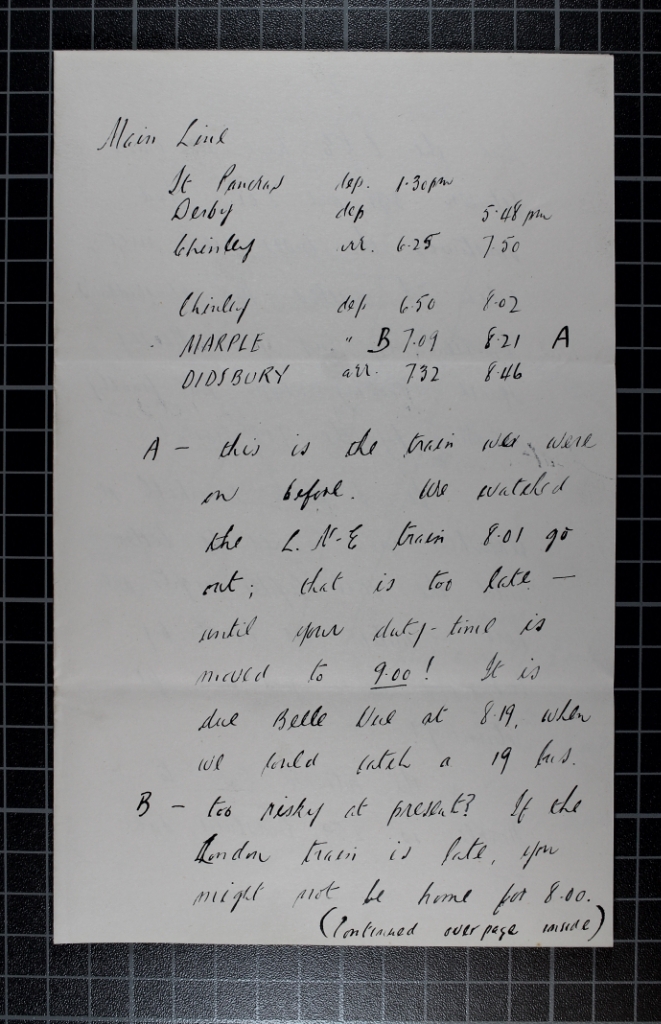 Main Line
St Pancras dep. 1.30pm
Derby dep 5.48 pm
Chinley arr. 6.25 7.50
Chinley dep 6.50 8.02
MARPLE " B 7.09 8.21 A
DIDSBURY arr. 732 8.46
A – this is the train wer were
on before. We watched
the L.N-E train 8.01 go
out; that is too late –
until your duty-time is
moved to 9.00! It is
due Belle Vue at 8.19, when
we could catch a 19 bus.
B – too risky at present? If the
London train is late, you
might not be home for 8.00.
(Continued over page inside)